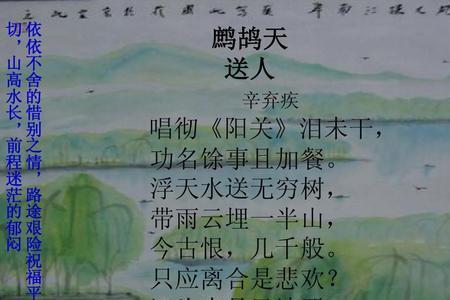 鹧鸪天
送人
辛弃疾
唱彻《阳关》泪未干，
功名馀事且加餐。
浮天水送无穷树，
带雨云埋一半山，
今古恨，几千般。
只应离合是悲欢？
依依不舍的惜别之情，路途艰险祝福平
切，山高水长，前程迷茫的郁闷